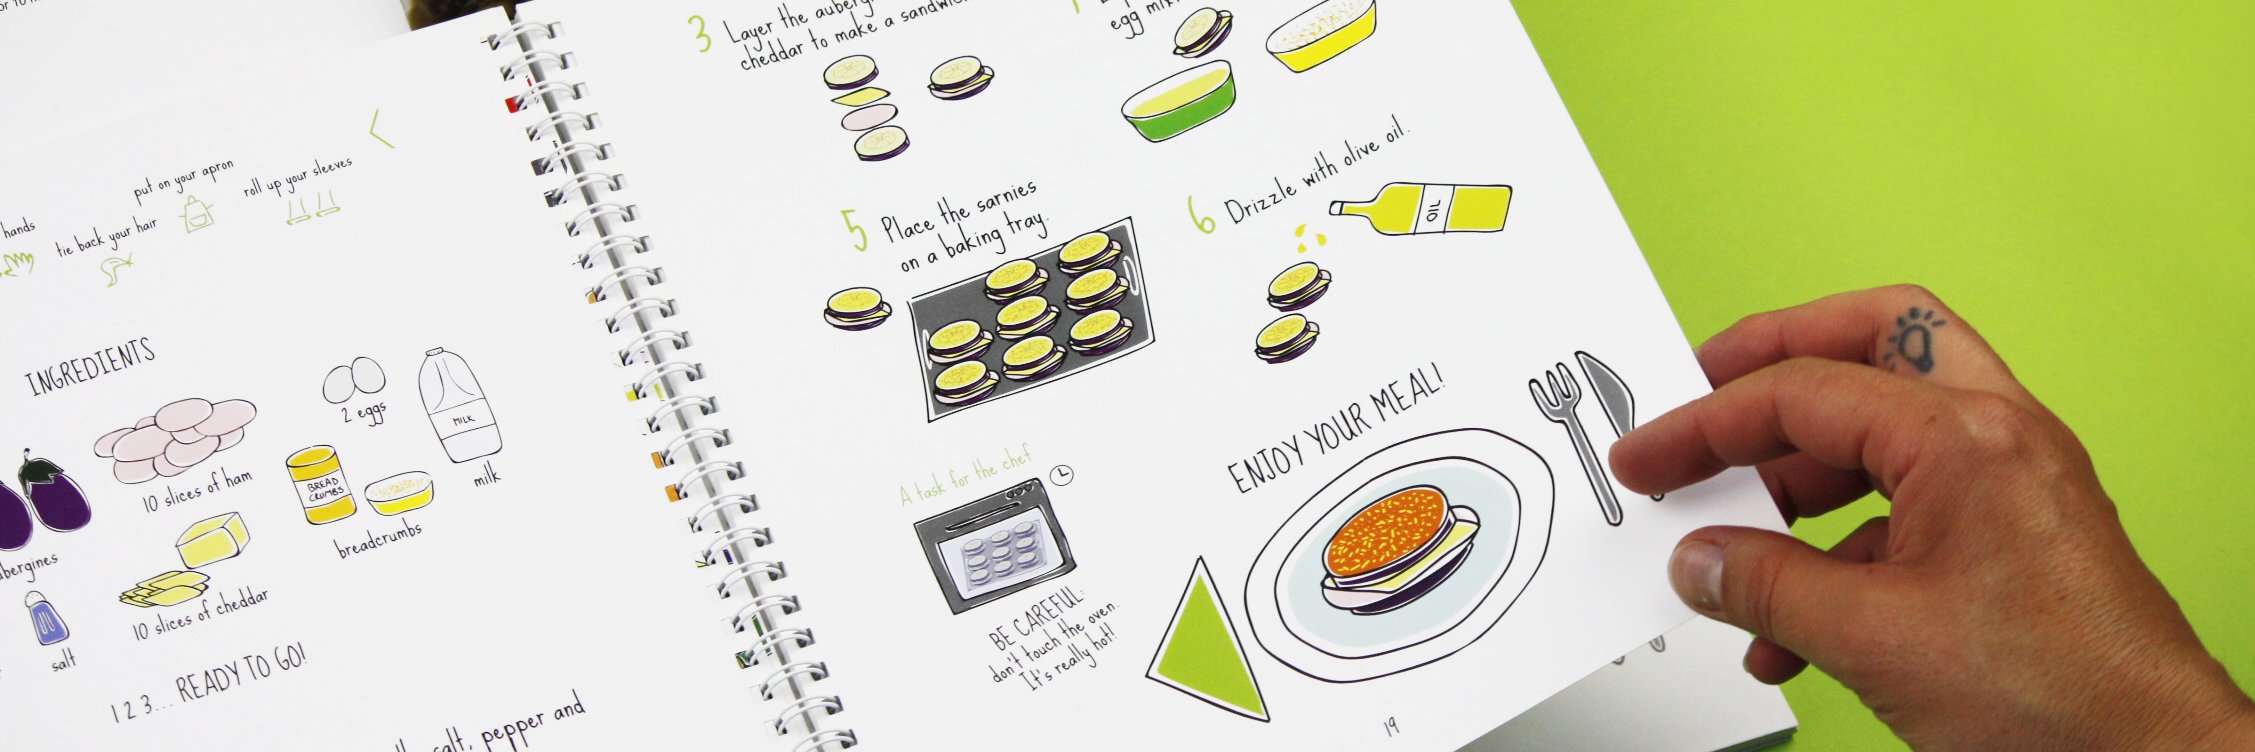 hands
tie back your hair
put on your apron
roll up your sleeves
INGREDIENTS
10 slices of ham
2 eggs
MILK
milk
BREAD
CRUMBS
breadcrumbs
10 slices of cheddar
salt
1 2 3... READY TO GO!
salt, pepper and
3 Layer the
cheddar to make a
egg
5 Place the sarnies
on a baking tray.
6 Drizzle with olive oil.
OIL
A task for the chef
BE CAREFUL:
don't touch the oven.
It's really hot!
ENJOY YOUR MEAL!
19